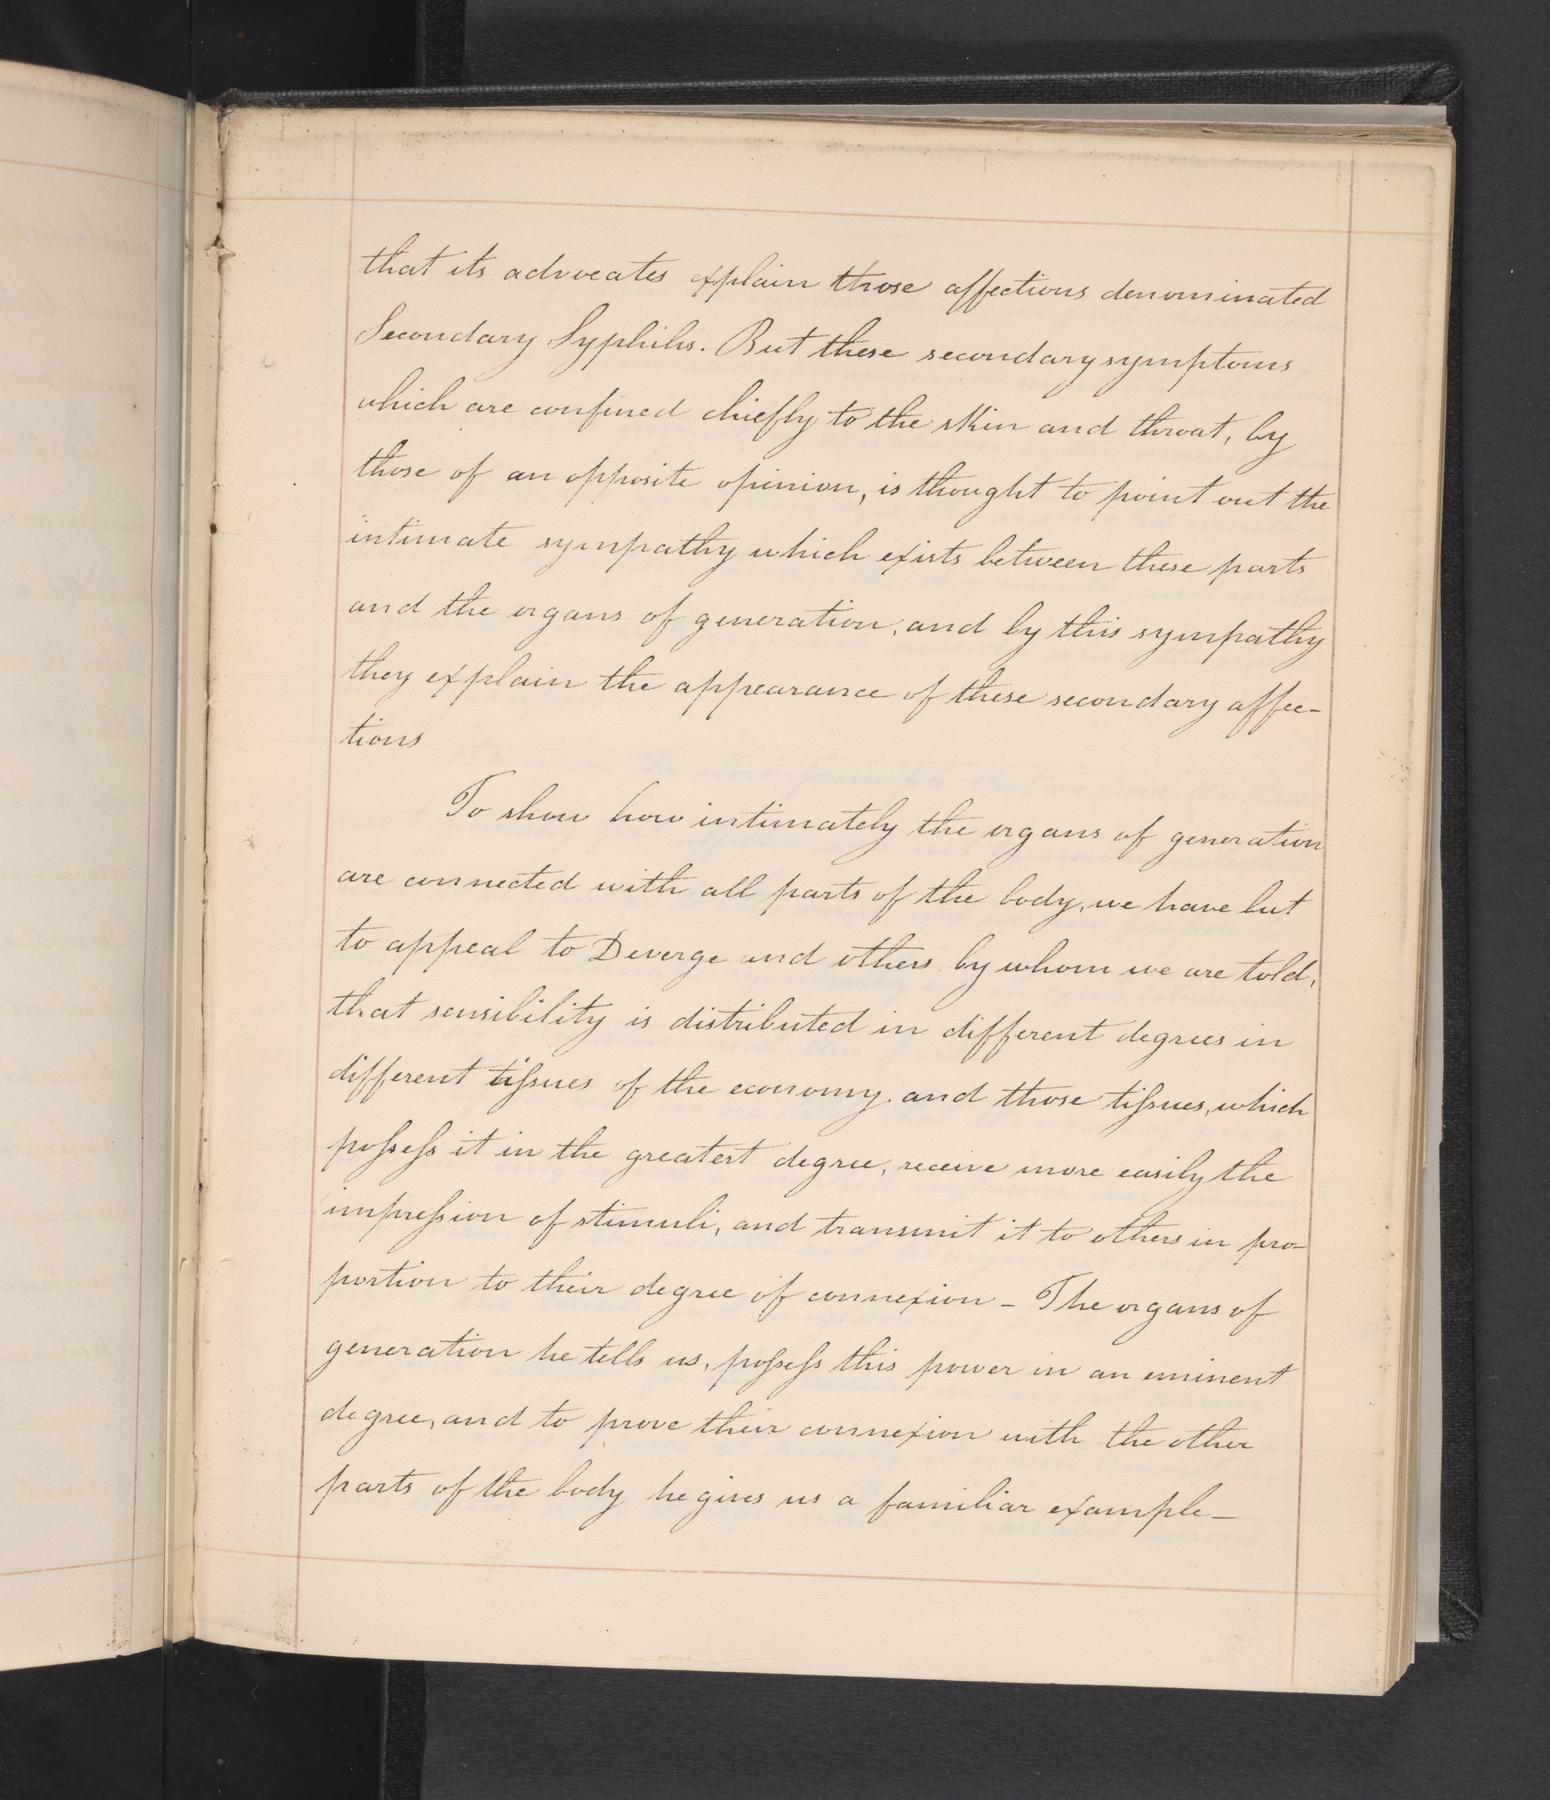 that its advocates explain those affections denominated
Secondary Syphilis. But these secondary symptoms
which are confined chiefly to the skin and throat, by
those of an opposite opinion, is thought to point out the
intimate sympathy which exists between these parts
and the organs of generation, and by this sympathy
they explain the appearance of these secondary affec-
tions
To show how intimately the organs of generation
are connected with all parts of the body, we have but
to appeal to Deverge and others by whom we are told,
that sensibility is distributed in different degrees in
different tiſsues of the economy. and those tiſsues, which
poſseſs it in the greatest degree, receive more easily the
impreſsion of stimuli, and transmit it to others in pro-
portion to their degree of connexion - The organs of
generation he tells us, poſseſs this power in an eminent
degree, and to prove their connexion with the other
parts of the body he gives us a familiar example -